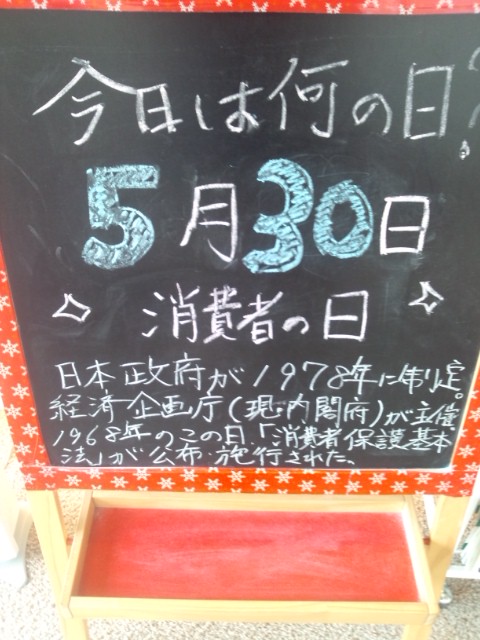 今日は何の日?
5月30日
消費者の日
日本政府が1978年に制定。
経済企画庁(現・内閣府)が主催。
1968年のこの日、「消費者保護基本
法」が公布・施行された。